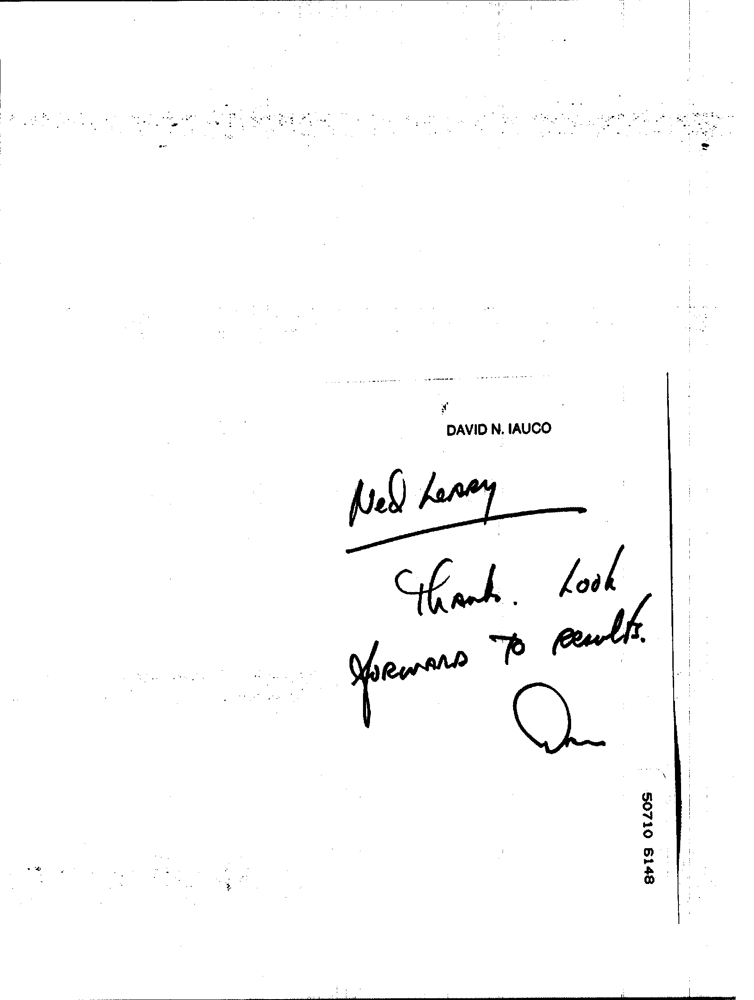 DAVID N. IAUCO
Ned Leary
Thanks. Look
forward to results.
50710 6148